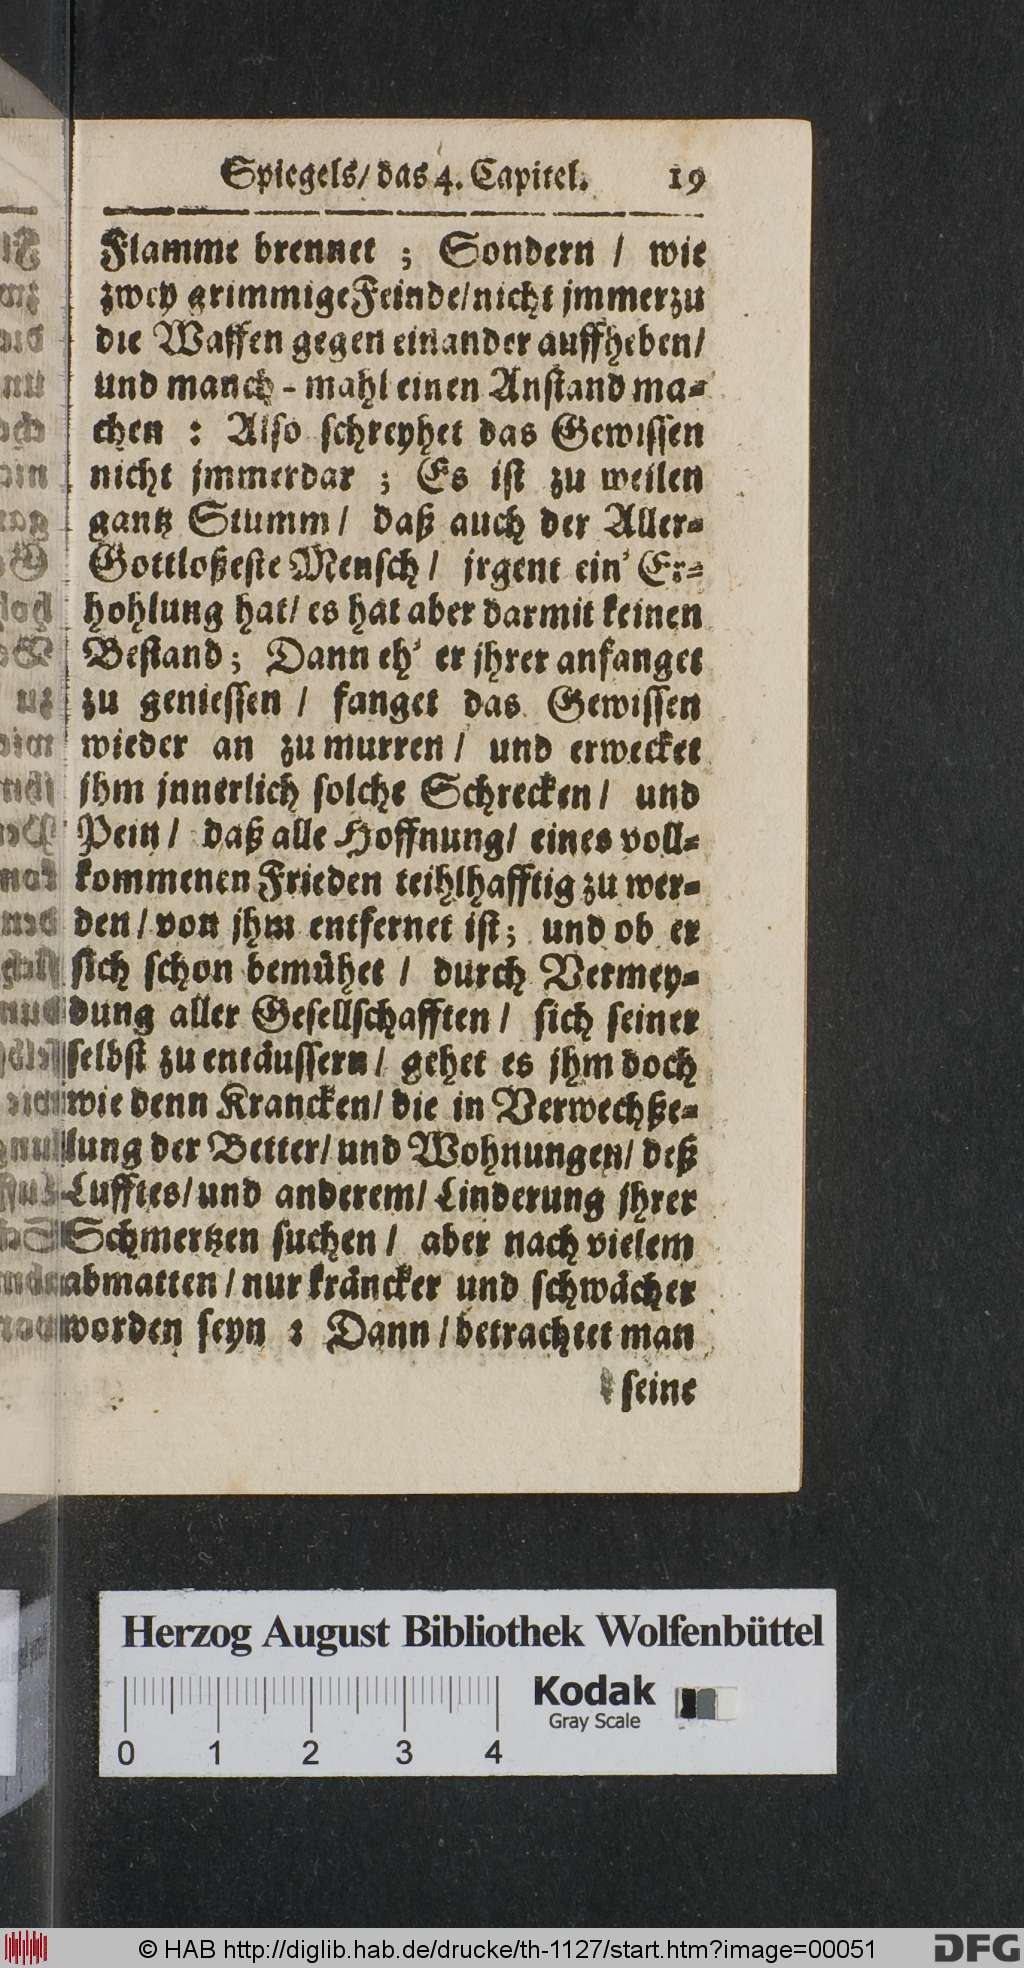 Spiegels/ das 4. Capitel. 19
Flamme brennet ; Sondern / wie
zwey grimmige Feinde/ nicht jmmerzu
die Waffen gegen einander auffheben/
und manch - mahl einen Anstand ma-
chen : Also schreyhet das Gewissen
nicht jmmerdar ; Es ist zu weilen
gantz Stumm / daß auch der Aller-
Gottloßeste Mensch / jrgent ein' Er-
hohlung hat/ es hat aber darmit keinen
Bestand ; Dann eh' er jhrer anfanget
zu geniessen / fanget das Gewissen
wieder an zu murren / und erwecket
jhm jnnerlich solche Schrecken / und
Pein / daß alle Hoffnung/ eines voll-
kommenen Frieden teihlhafftig zu wer-
den / von jhm entfernet ist ; und ob er
sich schon bemühet / durch Vermey-
dung aller Gesellschafften / sich seiner
selbst zu entäussern / gehet es jhm doch
wie denn Krancken/ die in Verwechße-
lung der Better/ und Wohnungen/ deß
Lufftes/ und anderem/ Linderung jhrer
Schmertzen suchen / aber nach vielem
abmatten / nur kräncker und schwächer
worden seyn : Dann / betrachtet man
seine
Herzog August Bibliothek Wolfenbüttel
Kodak
Gray Scale
0 1 2 3 4
© HAB http://diglib.hab.de/drucke/th-1127/start.htm?image=00051
DFG